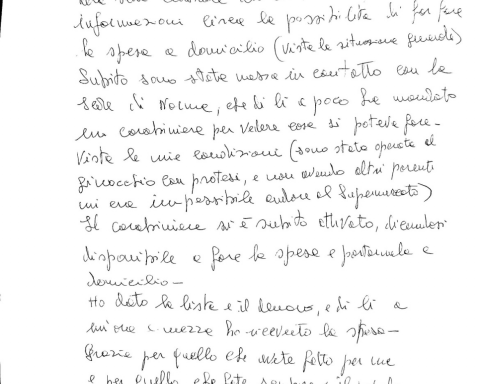 informazioni circa la possibilità di far fare
la spesa a domicilio (vista la situazione generale)
Subito sono stata messa in contatto con la
sede di Norma, che di lì a poco ha mandato
un carabiniere per vedere cosa si poteva fare –
Viste le mie condizioni (sono stata operata al
ginocchio con protesi, e non avendo altri parenti
mi era impossibile andare al Supermercato)
Il carabiniere si è subito attivato,
disponibile a fare la spesa e portarmela a
domicilio –
Ho dato la lista e il denaro, e di lì a
un'ora e mezza ho ricevuto la spesa –
Grazie per quello che avete fatto per me
e per quello che fate